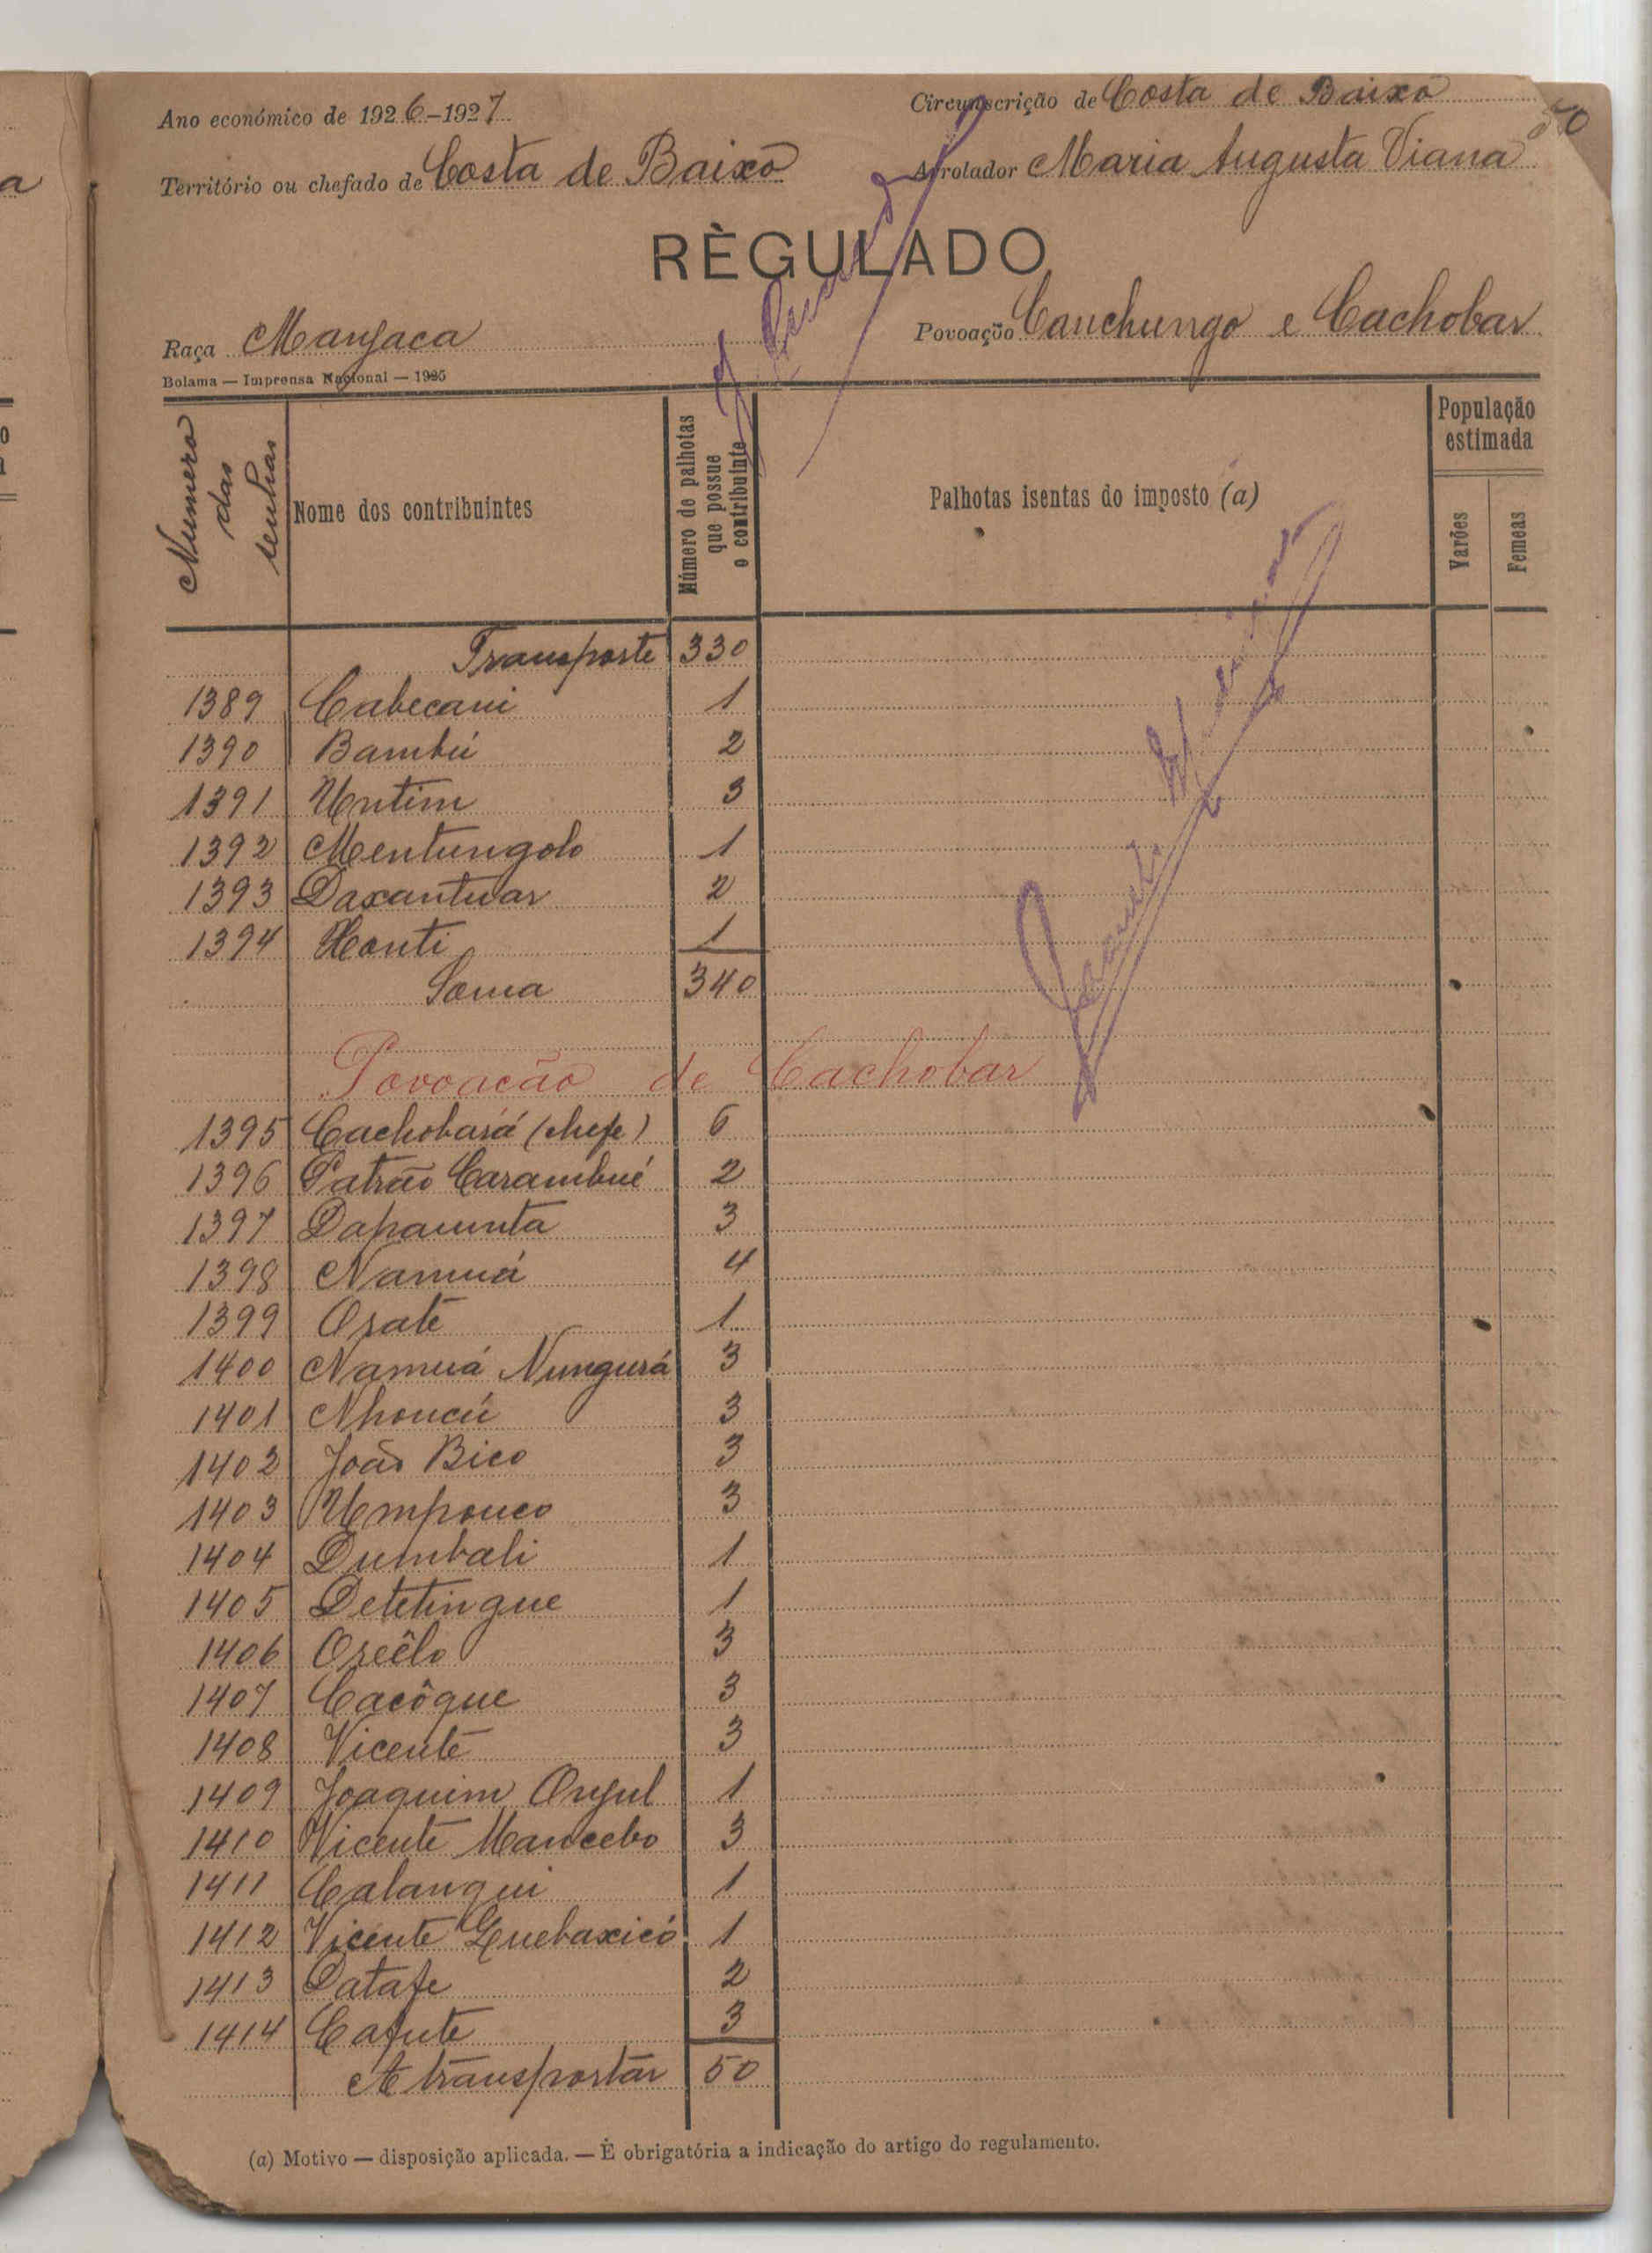 Ano económico de 1926-1927
Circunscrição de Costa de Baixo
50
Território ou chefado de Costa de Baixo
Arrolador Maria Augusta Viana
RÈGULADO
Raça Manjaca
Povoação Canchungo e Cachobar
Bolama — Imprensa Nacional — 1925
Numero das senhas
Nome dos contribuintes
Número de palhotas que possue o contribuinte
Palhotas isentas do imposto (a)
População estimada
Varões
Femeas
Transporte 330
1389 Cabecani 1
1390 Bambú 2
1391 Untim 3
1392 Mentungolo 1
1393 Daxantuar 2
1394 Honti 1
Soma 340
Povoacão de Cachobar
1395 Cachobará (chefe) 6
1396 Patrão Carambué 2
1397 Dapaunta 3
1398 Namuá 4
1399 Osate 1
1400 Namuá Nungurá 3
1401 Nhoucú 3
1402 João Bico 3
1403 Umpouco 3
1404 Dumbali 1
1405 Detetingue 1
1406 Osêêlo 3
1407 Cacôque 3
1408 Vicente 3
1409 Joaquim Onjul 1
1410 Vicente Mancebo 3
1411 Calanqui 1
1412 Vicente Guebaxicó 1
1413 Datafe 2
1414 Cafute 3
A transportar 50
(a) Motivo — disposição aplicada. — É obrigatória a indicação do artigo do regulamento.